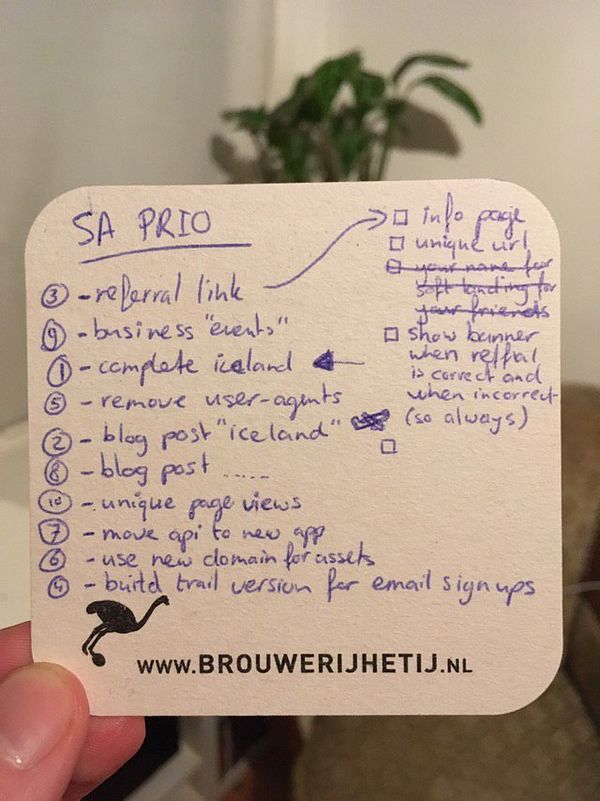 SA PRIO
③ - referral link
⑨ - business "events"
① - complete iceland
⑤ - remove user-agents
② - blog post "iceland"
⑧ - blog post .....
⑩ - unique page views
⑦ - move api to new app
⑥ - use new domain for assets
④ - build trail version for email sign ups
☐ info page
☐ unique url
☐ your name for
soft landing for
your friends
☐ show banner
when reffral
is correct and
when incorrect
(so always)
☐
WWW.BROUWERIJHETIJ.NL